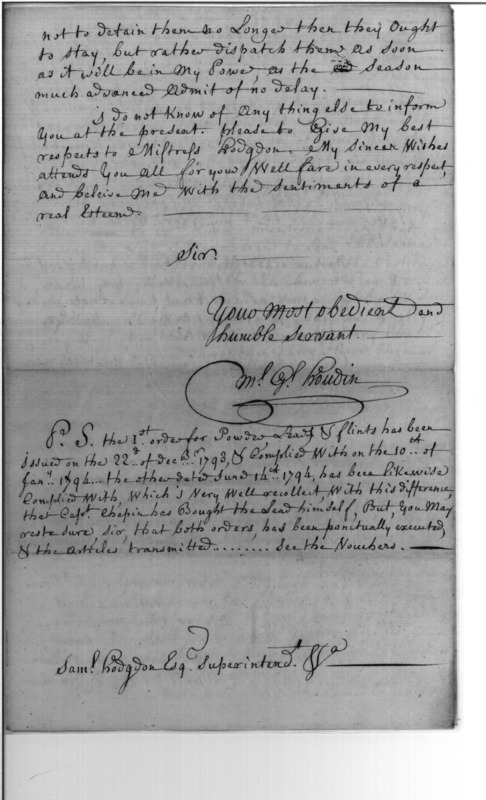 not to detain them no Longer then they Ought
to stay, but rather dispatch them as soon
as it will be in My Power, as the season
much advanced Admit of no delay.
I do not Know of Any thing else to inform
You at the present. please to Give My best
respects to Mistress Hodgdon. My sincer Wishes
attends You All for your Well fare in every respect,
and beleive Me With the sentiments of a
real Esteem.
Sir.
Your Most obedient and
humble servant
Ml. Gl. Houdin
P. S. the 1st. order for Powder, Lead, & flints has been
issued on the 22d. of decbr. 1793, & Complied With on the 10th. of
Jany. 1794... the other dated June 14th. 1794, has been likewise
Complied With, Which I Very Well recollect, With this difference,
that Capt. Chapin has Bought the Lead himself, But, You May
reste sure, Sir, that both orders, has been ponctually executed,
& the Articles transmitted........ See the Vouchers.
Saml. Hodgdon Esqr. Superintendt. &a